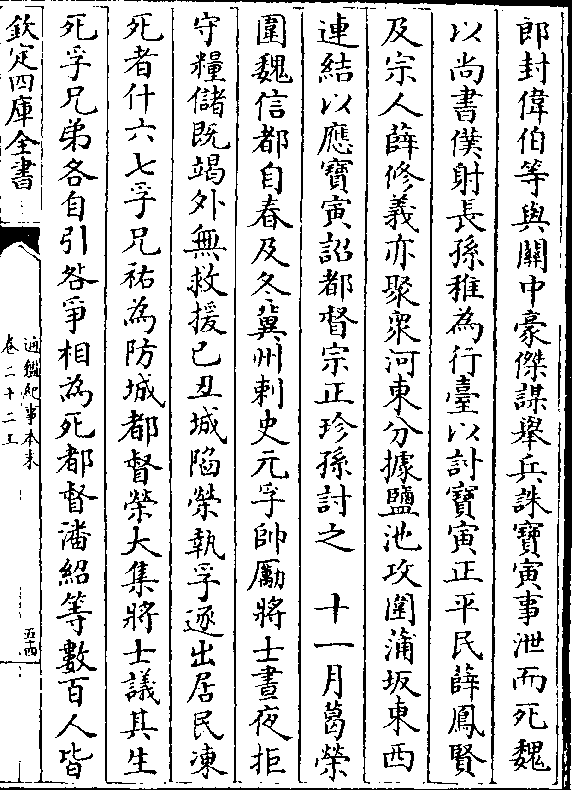 郎封偉伯等與關中豪傑謀舉兵誅寶寅事泄而死魏
以尚書僕射長孫稚為行臺以討寶寅正平民薛鳳賢
及宗人薛修義亦聚衆河東分據鹽池攻圍蒲坂東西
連結以應寶寅詔都督宗正珍孫討之　十一月葛榮
圍魏信都自春及冬冀州刺史元孚帥勵將士晝夜拒
守糧儲既竭外無救援己丑城陷榮執孚逐出居民凍
死者什六七孚兄祐為防城都督榮大集將士議其生
死孚兄弟各自引咎爭相為死都督潘紹等數百人皆
欽定四庫全書
通鑑紀事本末
卷二十二上
五十四